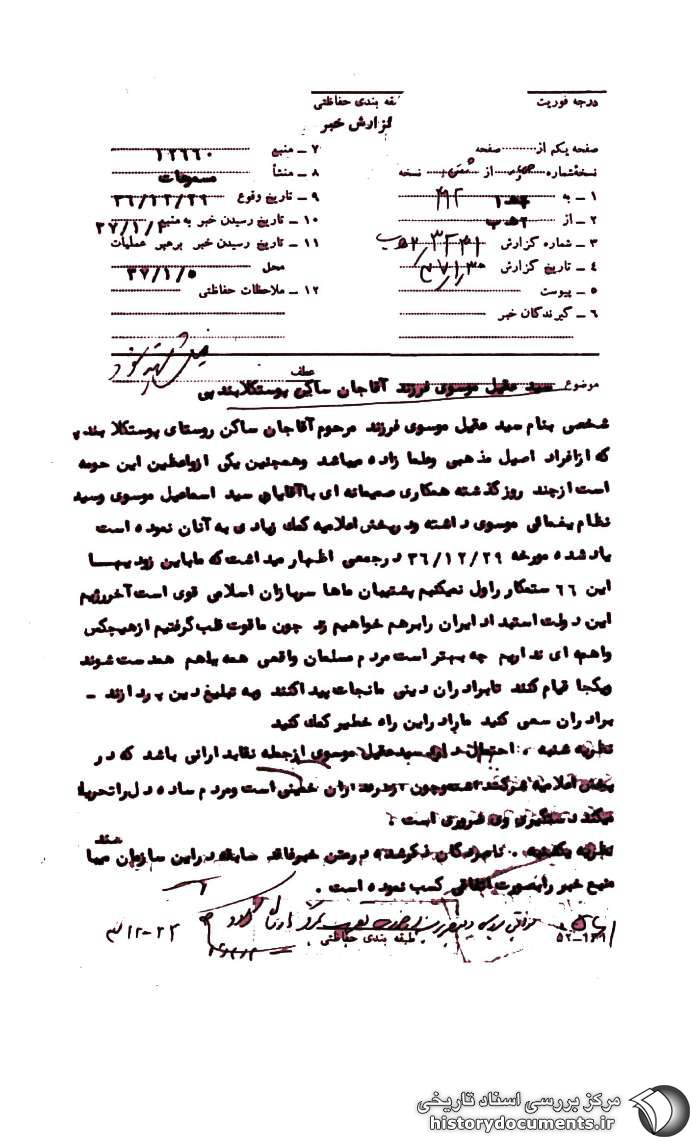 درجه فوریت
طبقه بندی حفاظتی
گزارش خبر
صفحه یکم از صفحه
نسخه شماره از نسخه
۱ ـ به
۲ ـ از
۳ ـ شماره گزارش
۴ ـ تاریخ گزارش
۵ ـ پیوست
۶ ـ گیرندگان خبر
۷ ـ منبع ۱۲۶۶۰
۸ ـ منشأ مسموعات
۹ ـ تاریخ وقوع ۳۶/۱۲/۲۹
۱۰ ـ تاریخ رسیدن خبر به منبع
۱۱ ـ تاریخ رسیدن خبر برهبر عملیات
محل ۳۷/۱/۵
۱۲ ـ ملاحظات حفاظتی
عطف
موضوع سید عقیل موسوی فرزند آقاجان ساکن پوستکلابندپی
شخصی بنام سید عقیل موسوی فرزند مرحوم آقاجان ساکن روستای پوستکلا
که ازافراد اصیل مذهبی وعلما زاده میباشد وهمچنین یکی ازواعظین این حومه
است ازچند روزگذشته همکاری صمیمانه ای باآقایان سید اسماعیل موسوی وسید
نظام یغمائی موسوی داشته ودرپخش اعلامیه کمک زیادی به آنان نموده است
یادشده مورخه ۳۶/۱۲/۲۹ درجمعی اظهار میداشت که مابااین زودیها
این ۶۶ ستمکار راول نمیکنیم پشتیبان ماها سربازان اسلامی قوی است آخررژیم
این دولت استبداد ایران رابرهم خواهیم زد چون ماقوت قلب گرفتیم ازهیچکس
واهمه ای نداریم چه بهتر است مردم مسلمان واقعی همه باهم همدست شوند
ویکجا قیام کنند تابرادران دینی مانجات پیداکنند وبه تبلیغ دین بپردازند ـ
برادران سعی کنید مارادراین راه خطیر کمک کنید
نظریه شنبه . احتمال دارد سیدعقیل موسوی ازجمله نقابدارانی باشد که در
پخش اعلامیه شرکت داشته وچون ازطرفداران خمینی است ومردم ساده دل راتحریک
میکند دستگیری وی ضروری است .
نظریه یکشنبه . نامبردگان ذکرشده درمتن خبرفاقد سابقه دراین سازمان میباشند
منبع خبر رابصورت اتفاقی کسب نموده است .
طبقه بندی حفاظتی
مرکز بررسی اسناد تاریخی
historydocuments.ir